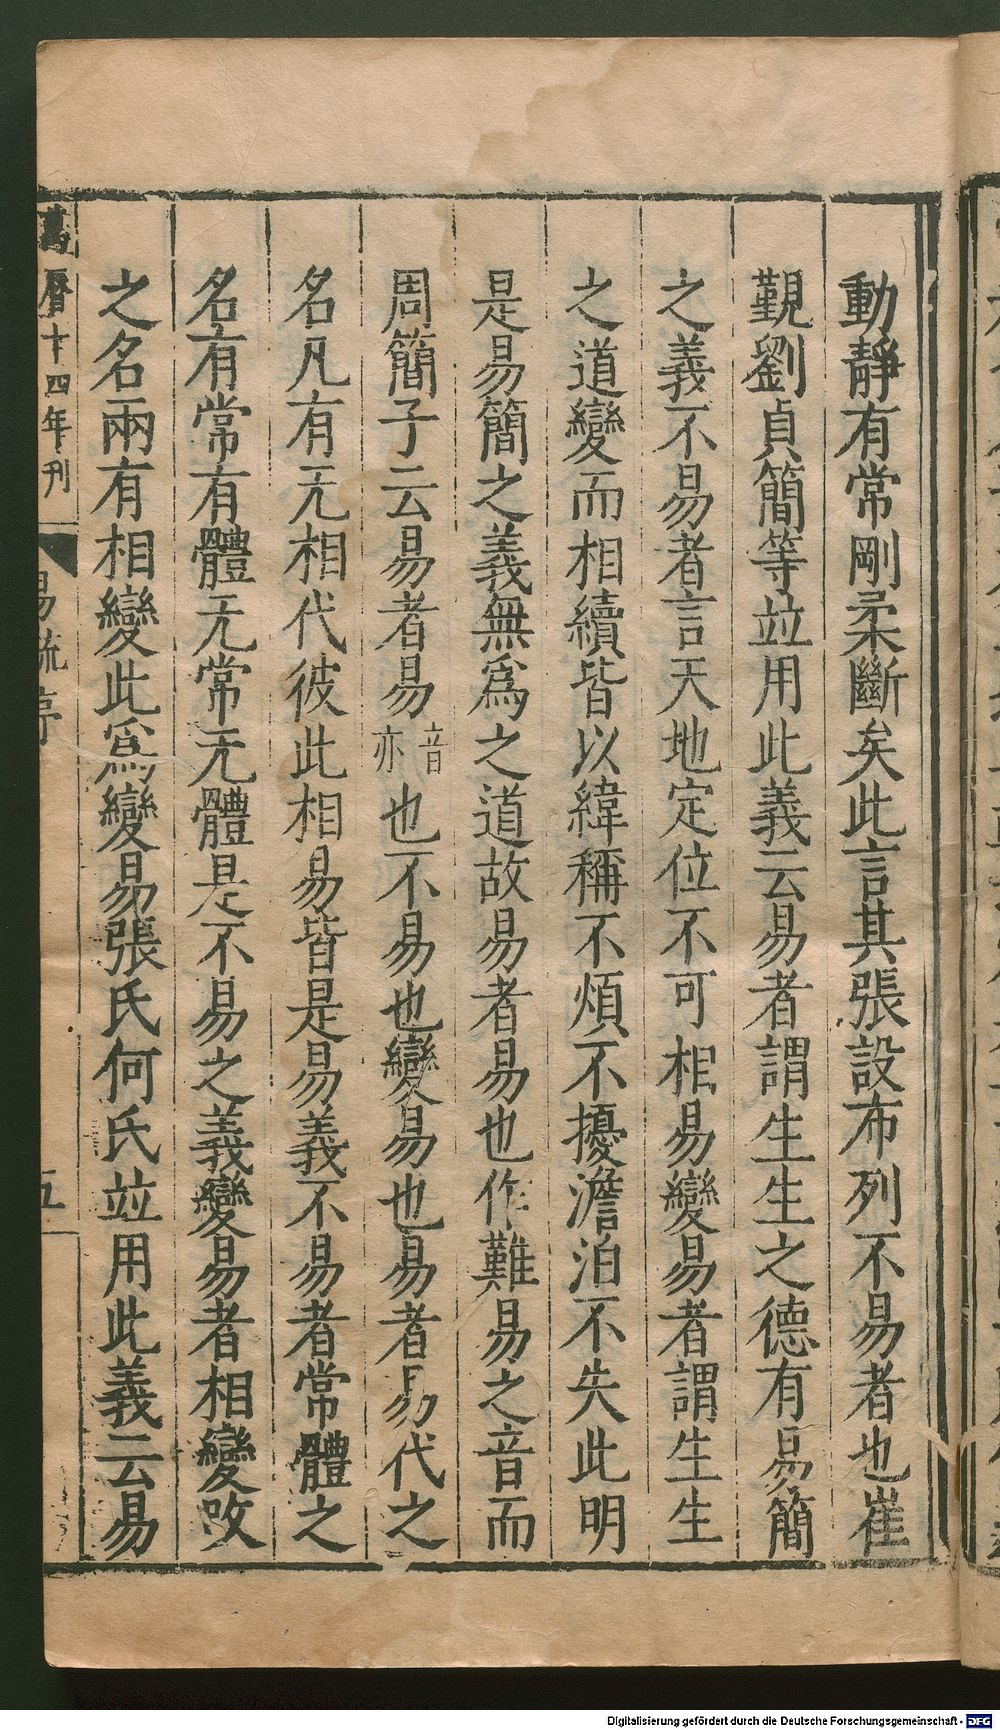 動靜有常剛柔斷矣此言其張設布列不易者也崔
覲劉貞簡等竝用此義云易者謂生生之德有易簡
之義不易者言天地定位不可相易變易者謂生生
之道變而相續皆以緯稱不煩不擾澹泊不失此明
是易簡之義無爲之道故易者易也作難易之音而
周簡子云易者易音亦也不易也變易也易者易代之
名凡有无相代彼此相易皆是易義不易者常體之
名有常有體无常无體是不易之義變易者相變改
之名兩有相變此爲變易張氏何氏竝用此義云易
萬曆十四年刊
易疏序
五
Digitalisierung gefördert durch die Deutsche Forschungsgemeinschaft - DFG